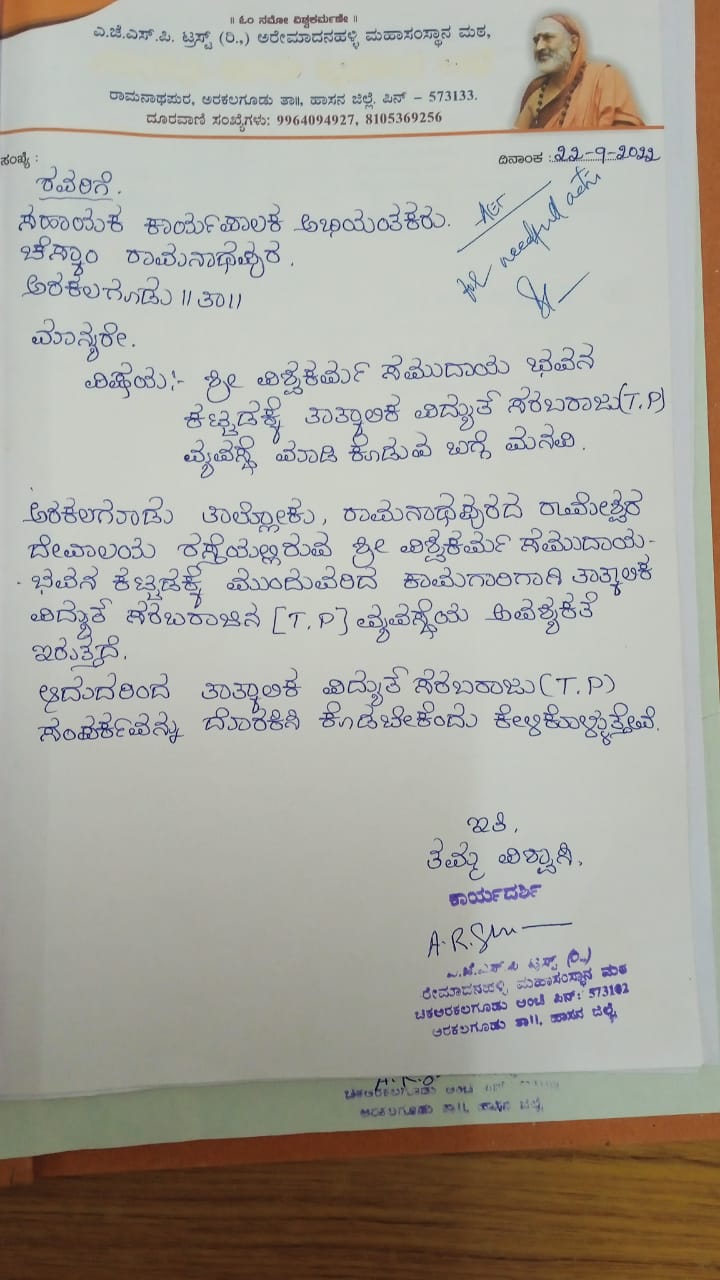 ॥ ಓಂ ನಮೋ ವಿಶ್ವಕರ್ಮಣೇ ॥
ಎ.ಜೆ.ಎಸ್.ಪಿ. ಟ್ರಸ್ಟ್ (ರಿ.,) ಅರೇಮಾದನಹಳ್ಳಿ ಮಹಾಸಂಸ್ಥಾನ ಮಠ,
ರಾಮನಾಥಪುರ, ಅರಕಲಗೂಡು ತಾ॥, ಹಾಸನ ಜಿಲ್ಲೆ. ಪಿನ್ – 573133.
ದೂರವಾಣಿ ಸಂಖ್ಯೆಗಳು: 9964094927, 8105369256
ಸಂಖ್ಯೆ :
ದಿನಾಂಕ : 22-9-2022
ರವರಿಗೆ.
ಸಹಾಯಕ ಕಾರ್ಯಪಾಲಕ ಅಭಿಯಂತಕರು.
ಚೆಸ್ಕಾಂ ರಾಮನಾಥಪುರ.
ಅರಕಲಗೂಡು ॥ ತಾ॥
AET
for needful actn
ಮಾನ್ಯರೇ.
ವಿಷಯ:- ಶ್ರೀ ವಿಶ್ವಕರ್ಮ ಸಮುದಾಯ ಭವನ
ಕಟ್ಟಡಕ್ಕೆ ತಾತ್ಕಾಲಿಕ ವಿದ್ಯುತ್ ಸರಬರಾಜು (T.P)
ವ್ಯವಸ್ಥೆ ಮಾಡಿ ಕೊಡುವ ಬಗ್ಗೆ ಮನವಿ.
ಅರಕಲಗೂಡು ತಾಲ್ಲೋಕು, ರಾಮನಾಥಪುರದ ರಾಮೇಶ್ವರ
ದೇವಾಲಯ ರಸ್ತೆಯಲ್ಲಿರುವ ಶ್ರೀ ವಿಶ್ವಕರ್ಮ ಸಮುದಾಯ-
ಭವನ ಕಟ್ಟಡಕ್ಕೆ ಮುಂದುವರಿದ ಕಾಮಗಾರಿಗಾಗಿ ತಾತ್ಕಾಲಿಕ
ವಿದ್ಯುತ್ ಸರಬರಾಜಿನ [T.P] ವ್ಯವಸ್ಥೆಯ ಅವಶ್ಯಕತೆ
ಇರುತ್ತದೆ.
ಆದುದರಿಂದ ತಾತ್ಕಾಲಿಕ ವಿದ್ಯುತ್ ಸರಬರಾಜು (T.P)
ಸಂಪರ್ಕವನ್ನು ದೊರಕಿಸಿ ಕೊಡಬೇಕೆಂದು ಕೇಳಿಕೊಳ್ಳುತ್ತೇವೆ.
ಇತಿ,
ತಮ್ಮ ವಿಶ್ವಾಸಿ,
ಕಾರ್ಯದರ್ಶಿ
ಎ.ಜೆ.ಎಸ್.ಪಿ ಟ್ರಸ್ಟ್ (ರಿ.,)
ರೇಮಾದನಹಳ್ಳಿ ಮಹಾಸಂಸ್ಥಾನ ಮಠ
ಚಿಕ್ಕಅರಕಲಗೂಡು ಅಂಚೆ ಪಿನ್: 573102
ಅರಕಲಗೂಡು ತಾ॥, ಹಾಸನ ಜಿಲ್ಲೆ.
ಅರಕಲಗೂಡು ತಾ॥, ಹಾಸನ ಜಿಲ್ಲೆ.